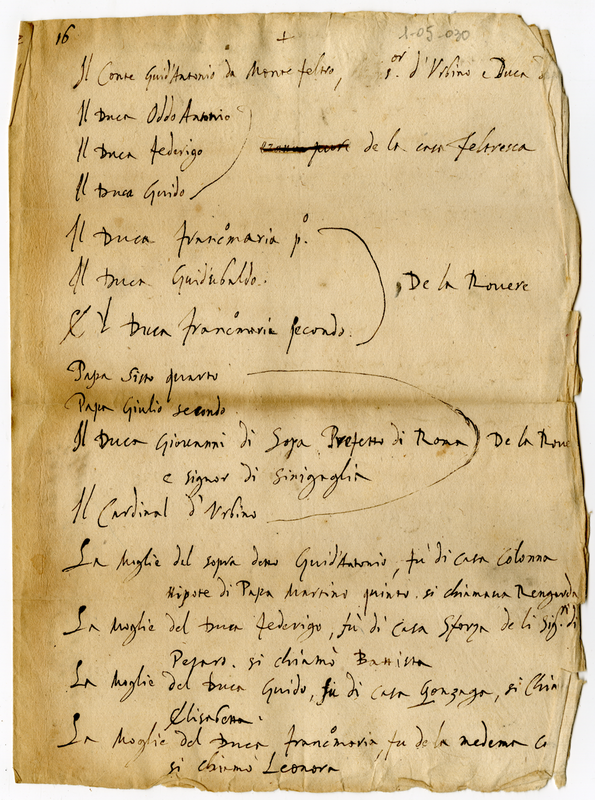 16 + 1-05-030
Il Conte Guid'Antonio da Monte feltro, s.or d'Urbino e Duca d
Il Duca Oddo Antonio
Il Duca Federigo de la casa feltresca
Il Duca Guido
Il Duca franc.o maria p.o
Il Duca Guidubaldo. De la Rouere
Il Duca franc.o maria secondo.
Papa Sisto quarto
Papa Giulio secondo
Il Duca Giovanni di Sora Prefetto di Roma De la Roue
e signor di Sinigaglia
Il Cardinal d'Urbino
La Moglie del sopra detto Guid'Antonio, fù di casa Colonna
Nipote di Papa Martino quinto. si chiamaua Rengarda
La Moglie del Duca Federigo, fù di casa Sforza de li Sig.ri di
Pesaro. si chiamò Battista
La Moglie del Duca Guido, fù di casa Gonzaga, si Chia
Elisabetta
La Moglie del Duca franc.o maria, fu de la medema Ca
si chiamò Leonora